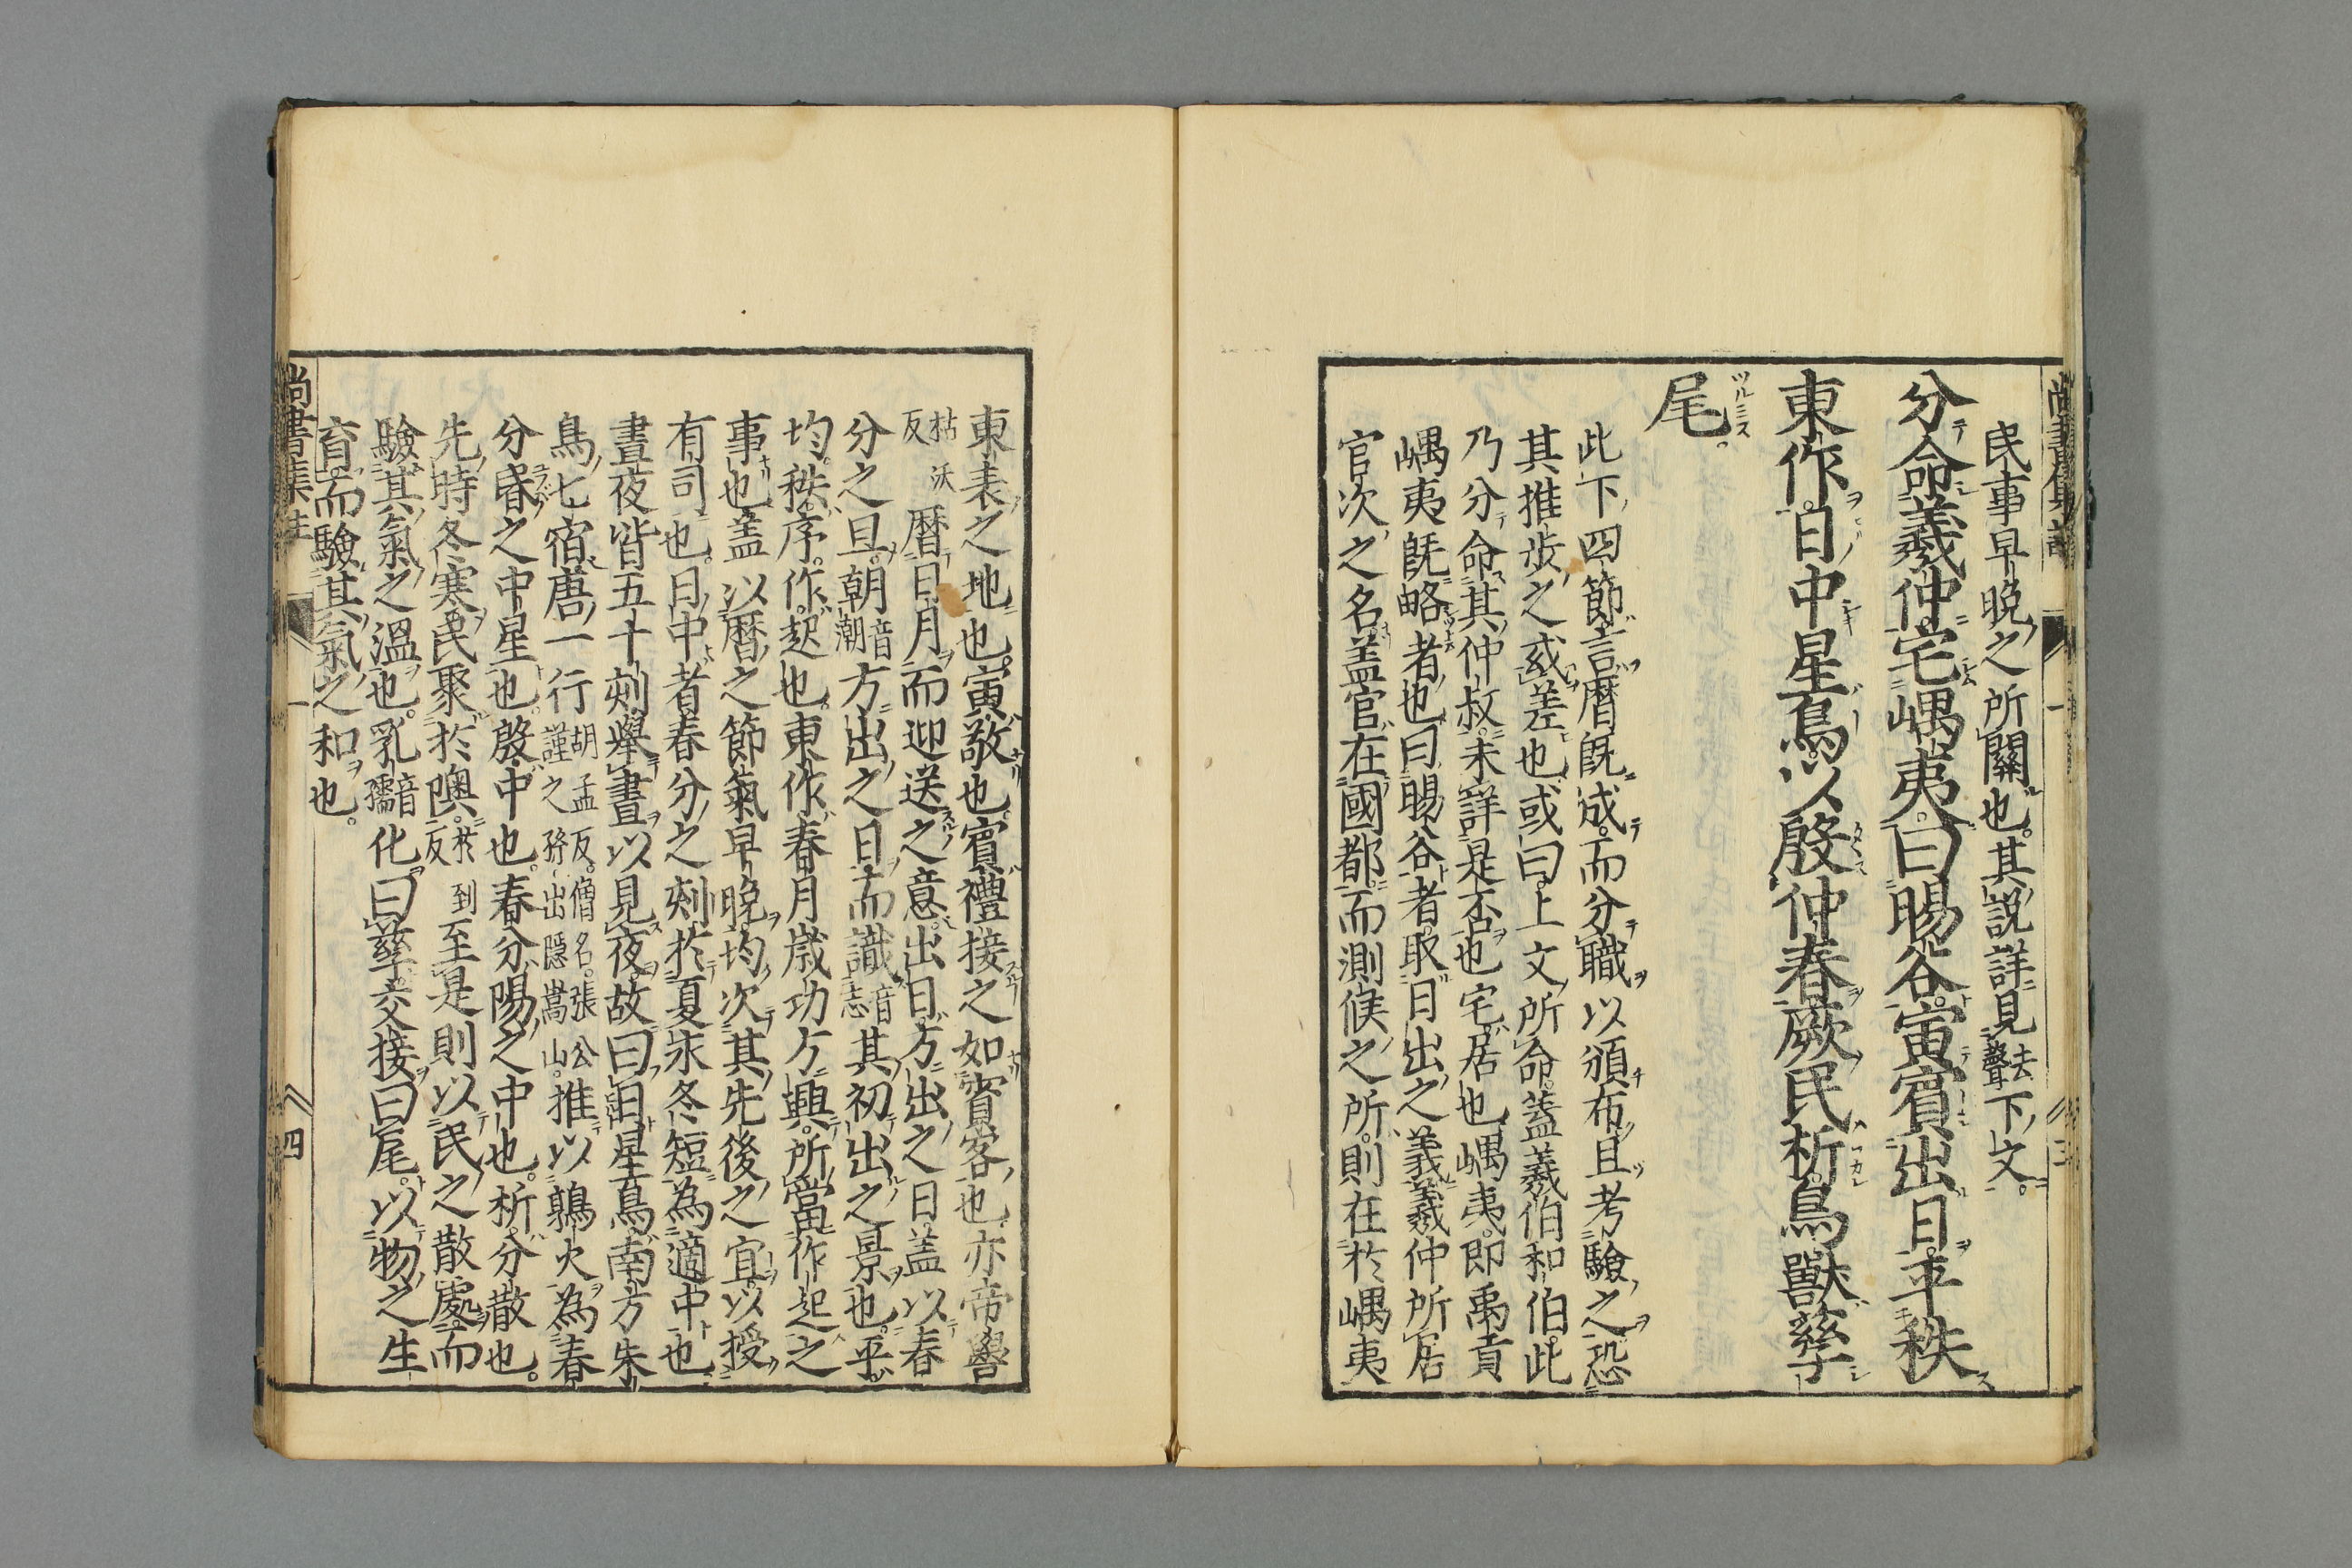 民事早晩之所關也。其説詳見去聲下文。
分命羲仲。宅嵎夷。曰暘谷。寅賓出日。平秩
東作。日中星鳥。以殷仲春。厥民析。鳥獸孳
尾。
此下四節。言暦既成。而分職以頒布。且考驗之。恐
其推歩之或差也。或曰。上文所命。蓋羲伯和伯。此
乃分命其仲叔。未詳是否也。宅。居也。嵎夷。即禹貢
嵎夷既略者也。曰暘谷者。取日出之義。羲仲所居
官次之名。盖官在國都。而測候之所。則在於嵎夷
東表之地也。寅。敬也。賓。禮接之如賓客也。亦帝嚳
枯沃反暦日月而迎送之意。出日。方出之日。盖以春
分之旦。朝音潮方出之日。而識音志其初出之景也。平。
均。秩。序。作。起也。東作。春月歳功方興。所當作起之
事也。盖以暦之節氣早晩。均次其先後之宜。以授
有司也。日中者。春分之刻。於夏永冬短為適中也
晝夜皆五十刻。舉晝以見夜。故曰日。星鳥。南方朱
鳥七宿。唐一行胡孟反。僧名。張公謹之孫。出隠嵩山。推以鶉火為春
分昏之中星也。殷。中也。春分陽之中也。析。分散也。
先時冬寒。民聚於隩。於到反至是則以民之散處。而
驗其氣之温也。乳音孺化曰孳。交接曰尾。以物之生
育。而驗其氣之和也。
尚書集註
一
四